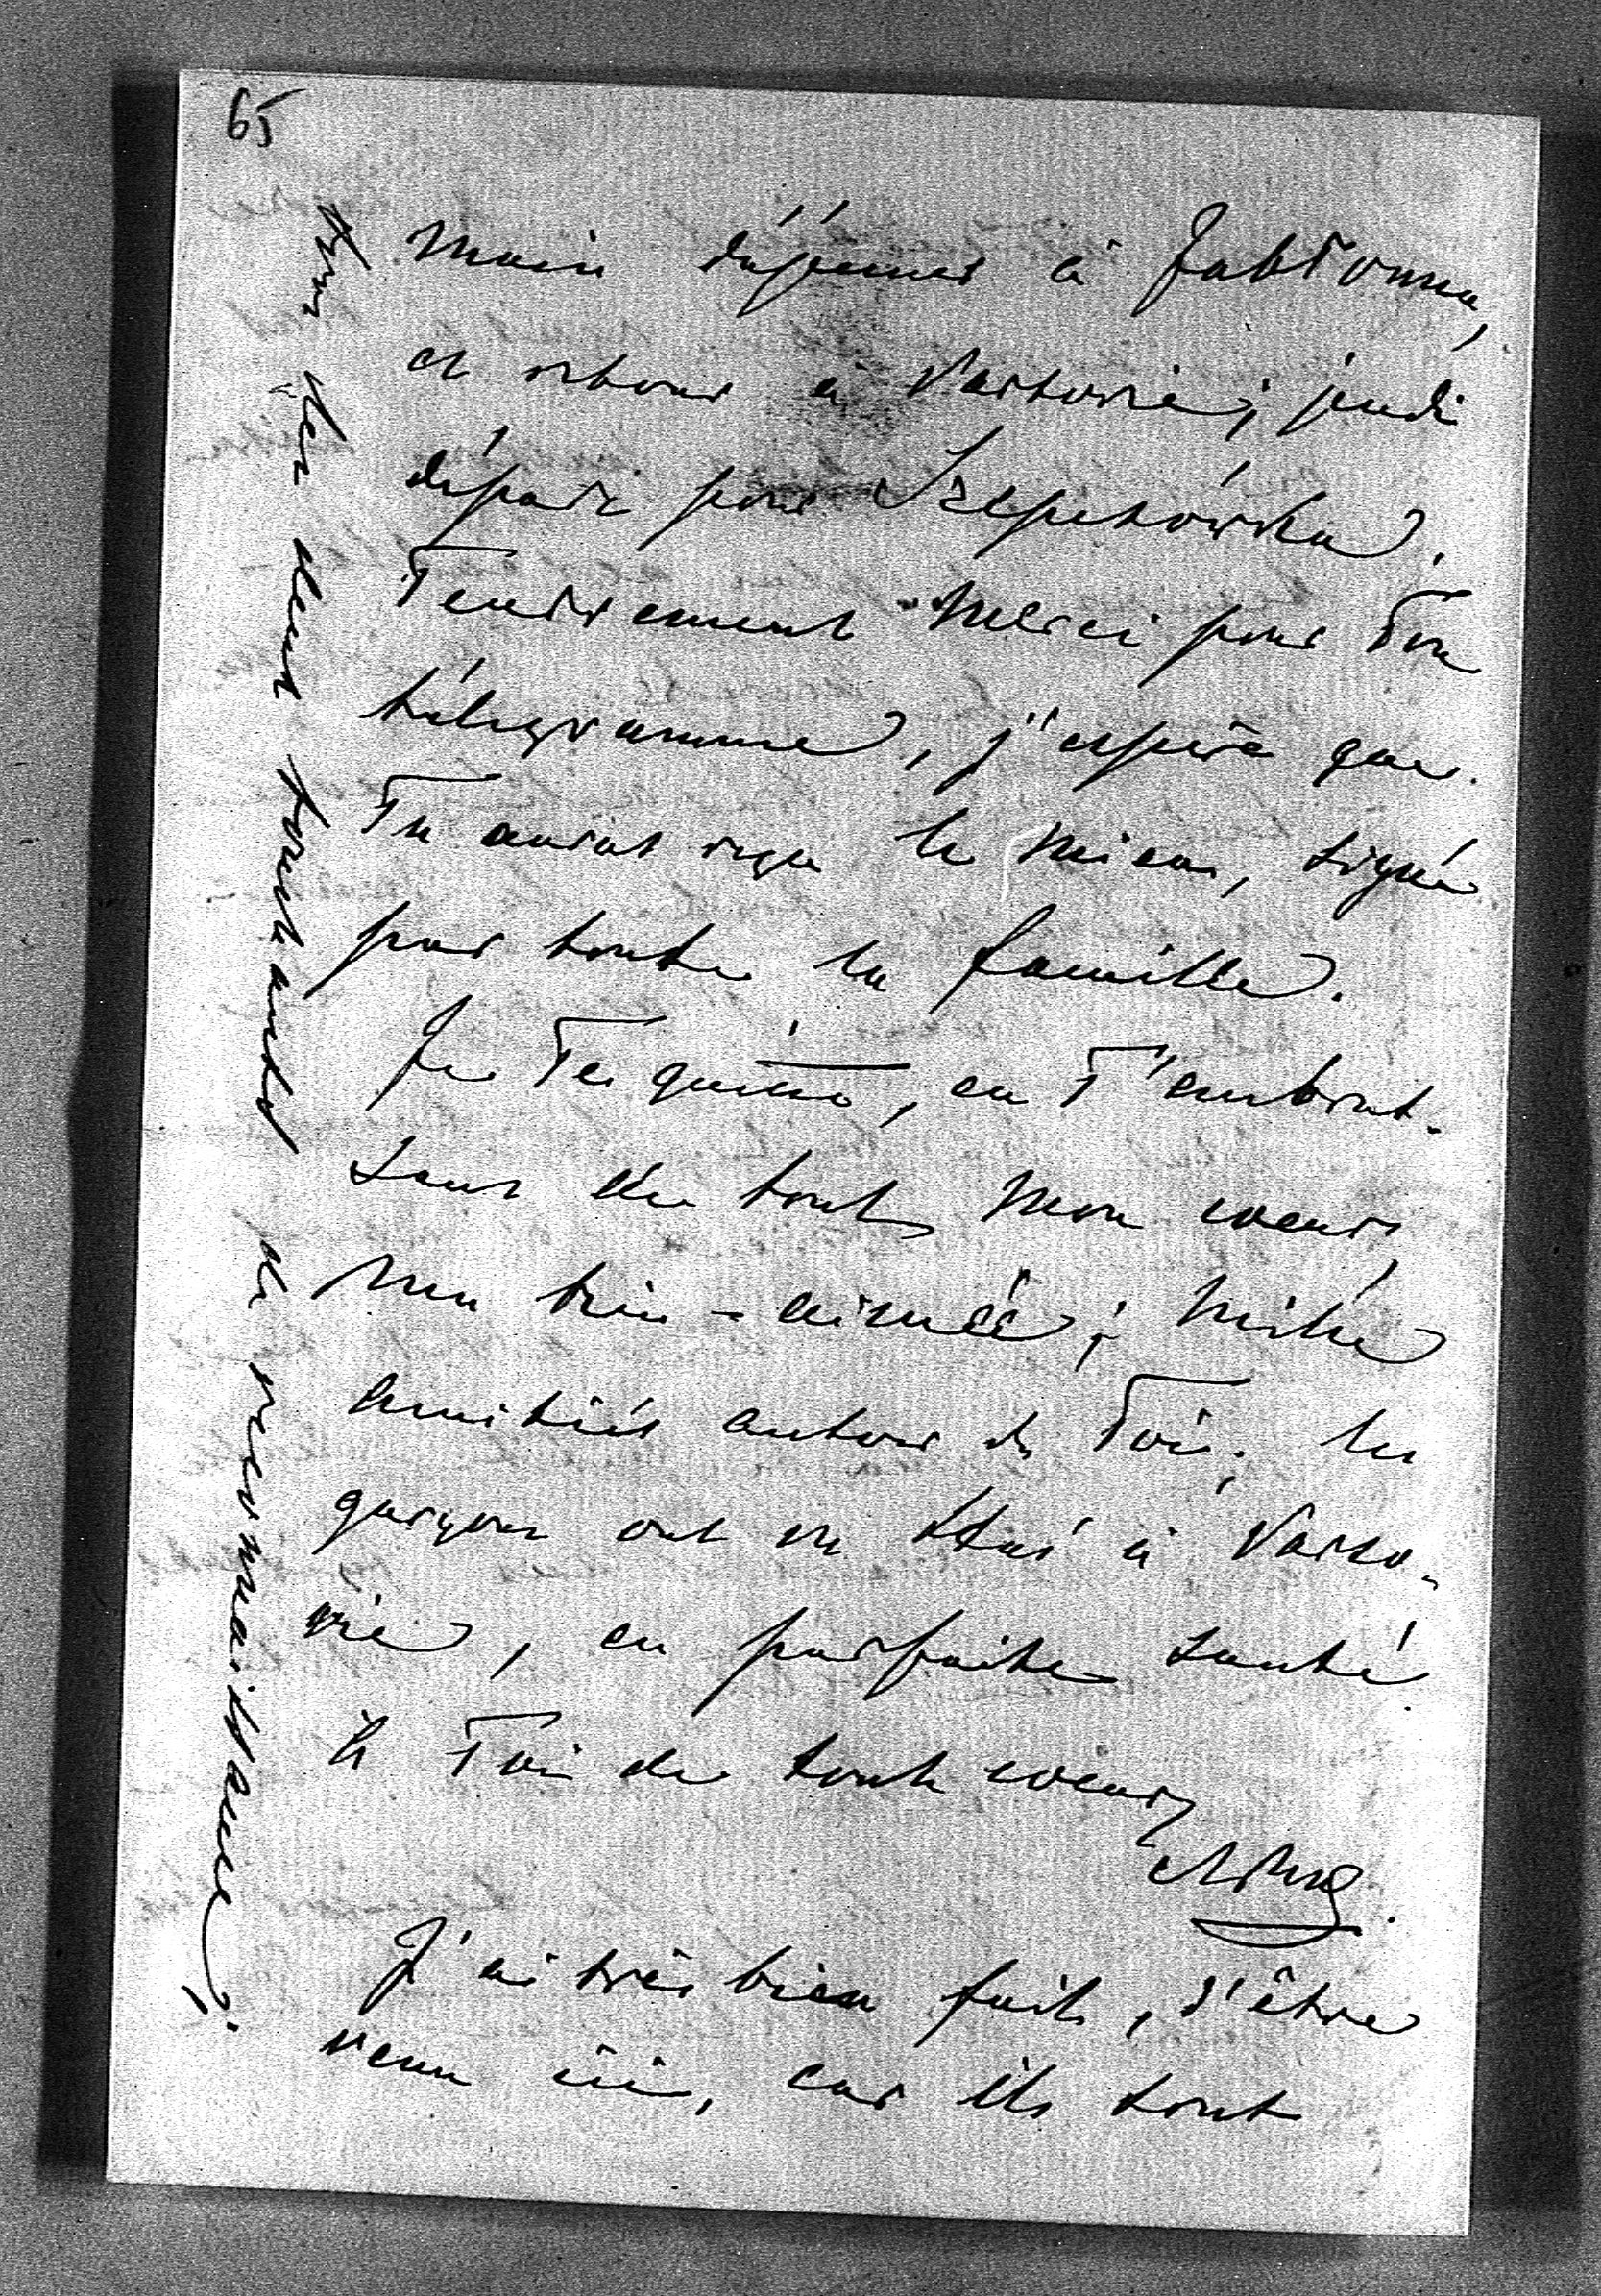 65
main déjeuner à Jabłonna,
et retour à Varsovie; jeudi
départ pour Szepetówka.
Tendrement merci pour Ton
télégramme, j'espère que
Tu auras reçu le mien, signé
par toute la famille.
Je Te quitte, en T'embras-
sant de tout mon coeur,
ma bien-aimée; mille
amitiés autour de Toi; les
garçons ont vu Staś à Varso-
vie, en parfaite santé.
à Toi de tout coeur
J'ai très bien fait, d'être
venu ici, car ils sont
tous les deux touchants de reconnaissance!